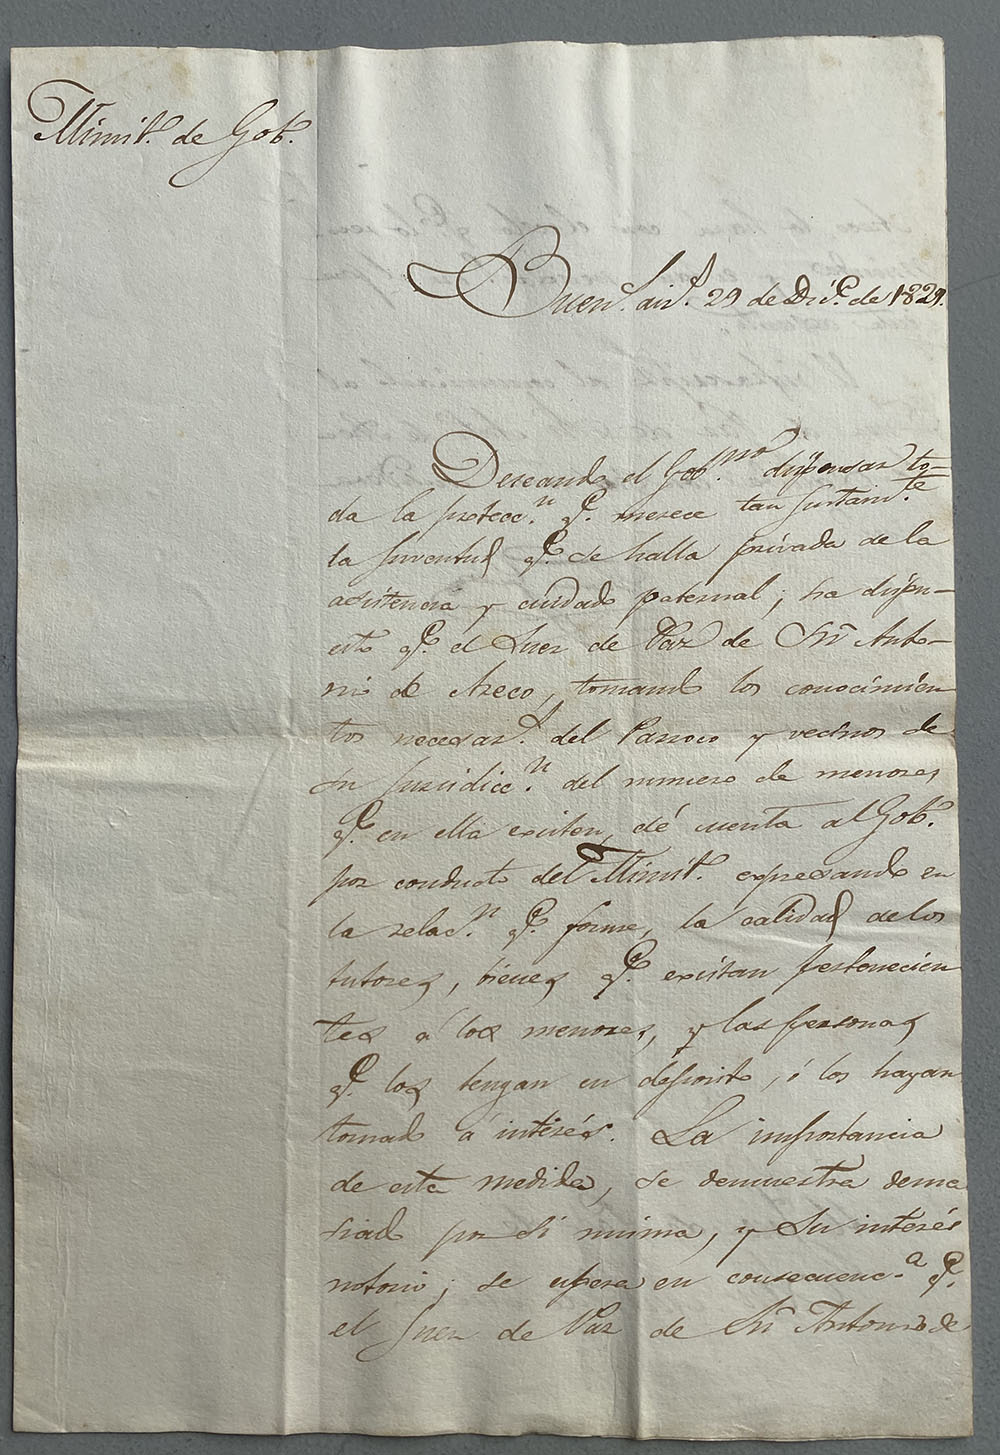 Minist.º de Gob.º
Buen.s air.s 29 de Dic.e de 1829.
Deseando el Gob.no dispensar to-
da la protecc.n q.e merece tan justam.te
la juventud q.e se halla privada de la
asistencia y cuidado paternal; ha dispu-
esto q.e el Juez de Paz de Sn Anto-
nio de Areco, tomando los conocimien
tos necesar.s del Parroco y vecinos de
su jurisdicc.n del numero de menores
q.e en ella existen, dé cuenta al Gob.º
por conducto del Minist.º expresando en
la relac.n q.e forme, la calidad de los
tutores, bienes q.e existan pertenecien
tes á los menores, y las personas
q.e los tengan en deposito, ó los hayan
tomado á interés. La importancia
de esta medida, se demuestra dema
siado por si misma, y su interés
notorio; se espera en consecuenc.a q.e
el Juez de Paz de Sn Antonio de